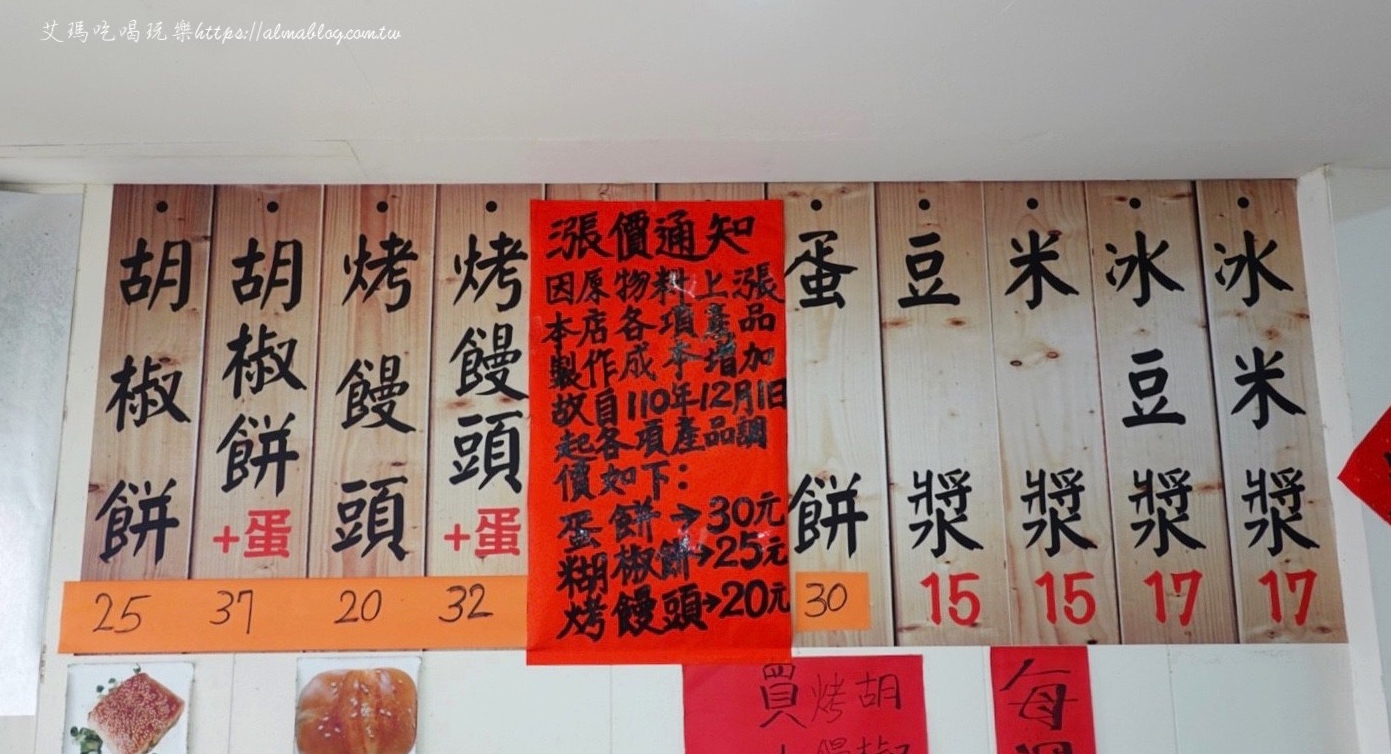 艾瑪吃喝玩樂https://almablog.com.tw
胡椒餅
25
胡椒餅+蛋
37
烤饅頭
20
烤饅頭+蛋
32
漲價通知
因原物料上漲
本店各項產品
製作成本增加
故自110年12月1日
起各項產品調
價如下：
蛋餅→30元
糊椒餅→25元
烤饅頭→20元
蛋餅
30
豆漿
15
米漿
15
冰豆漿
17
冰米漿
17
買烤胡
每